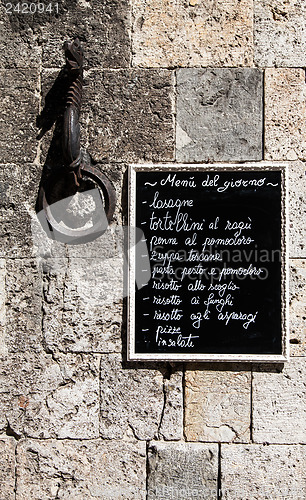 2420941
~ Menù del giorno ~
- lasagne
- tortellini al ragù
- penne al pomodoro
- zuppa toscana
- pasta pesto e pomodoro
- risotto allo scoglio
- risotto ai funghi
- risotto agli asparagi
- pizze
- insalate